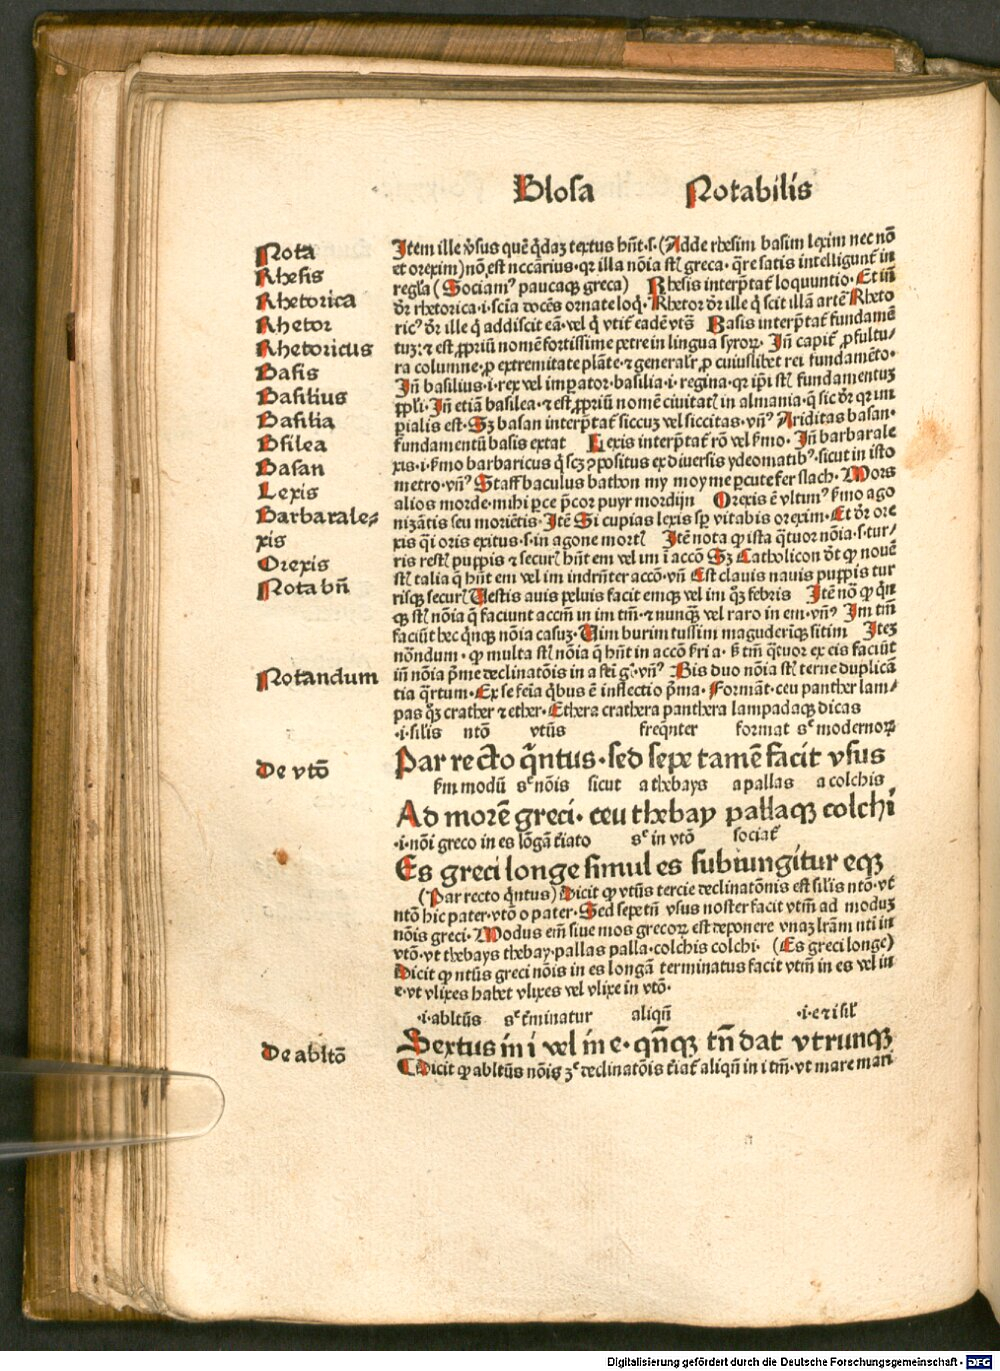 Glosa Notabilis
Nota
Rhesis
Rhetorica
Rhetor
Rhetoricus
Basis
Basilius
Basilia
Bsilea
Basan
Lexis
Barbarale⸗
xis
Orexis
Nota bn̄
Notandum
De vtō
De abltō
Item ille v̓sus quē q̄daꝫ textus hn̄t·s·(Adde rhesim basim lexim nec nō
et orexim) nō est nccārius·qꝛ illa nōia st̄ greca· q̄re satis intelligunt̄ in
regl̄a (Sociamꝰ paucaqꝫ greca) Rhesis interp̄tat̄ loquuntio·Et in̄
dr̄ rhetorica·i·scīa docēs ornate loq̄·Rhetor dr̄ ille q̄ scit illā artē Rheto
ricꝰ dr̄ ille q̄ addiscit eā·vel q̄ vtit̄ eadē vt̄s Basis interp̄tat̄ fundamē
tuꝫ:⁊ est ꝓpriū nomē fortissime petre in lingua syroꝝ· In̄ capit̄ ꝓ fultu⸗
ra columne·ꝓ extremitate plāte·⁊ generalr̄ ꝓ cuiuslibet rei fundamēto·
In̄ basilius·i·rex vel imꝑator·basilia·i·regina·qꝛ ip̄i st̄ fundamentuꝫ
ppl̄i·In̄ etiā basilea·⁊ est ꝓpriū nomē ciuitat̄ in almania·q̄ sic dr̄ qꝛ im
ꝑialis est·Sꝫ basan interp̄tat̄ siccuꝫ vel siccitas·vn̄ꝰ Ariditas basan·
fundamentū basis extat Lexis interp̄tat̄ rō vel s̄mo· In̄ barbarale
xis·i·s̄mo barbaricus q̄ scꝫ ꝯpositus ex diuersis ydeomatibꝰ·sicut in isto
metro·vn̄ꝰ Staff baculus bathon my moyme ꝑcute fer slach·Mors
alios morde·mihi ꝑce p̄cor puyr mordijn Orexis ē vltimꝰ s̄mo ago
nizātis seu moriētis·Itē Si cupias lexis sꝑ vitabis orexim·Et dr̄ ore
xis q̄i oris exitus·s·in agone mort̄ Itē nota ꝙ ista q̄tuor nōia·s·tur⸗
ris rest̄ puppis ⁊ secur̄ hn̄t em vel im ī accō Sꝫ Catholicon dt̄ ꝙ nouē
st̄ talia q̄ hn̄t em vel im indrn̄ter accō·vn̄ Est clauis nauis puppis tur
risqꝫ secur̄ Uestis auis peluis facit emqꝫ vel im qꝫ febris Itē nō ꝙ q̄n
qꝫ st̄ nōia q̄ faciunt accm̄ in im tm̄·⁊ nunqꝫ vel raro in em·vn̄ꝰ Im tm̄
faciūt hec q̄nqꝫ nōia casuꝫ·Uim burim tussim maguderiqꝫ sitim Iteꝫ
nōndum· ꝙ multa st̄ nōia q̄ hn̄t in accō
in̄ nōia p̄me declinatōis in a Bis duo nōia st̄ terne duplicā
tia q̄rtum·Ex se feīa q̄bus ē inflectio p̄ma·Formāt·ceu panther lam⸗
pas qꝫ crather ⁊ ether·Ethera crathera panthera lampadaqꝫ dicas
·i·silis ntō vtūs freqn̄ter format sꝫ modernoꝝ
Par recto q̄ntus·sed sepe tamē facit vsus
s̄m modū sꝫ nōis sicut a thebays a pallas a colchis
Ad morē greci·ceu thebay pallaqꝫ colchi
·i·nōi greco in es lōgā t̄iato sꝫ in vtō sociat̄
Es greci longe simul es subiungitur eqꝫ
(Par recto q̄ntus) Dicit ꝙ vtūs tercie declinatōnis est silis ntō·vt
ntō hic pater·vtō o pater·Sed sepe tn̄ vsus noster facit vtm̄ ad moduꝫ
nōis greci·Modus em̄ siue mos grecoꝝ est deponere vnaꝫ lrām nti in
vtō·vt thebays thebay·pallas palla·colchis colchi· (Es greci longe)
Dicit ꝙ ntūs greci nōis in es longā terminatus facit vtm̄ in es vel in
e·vt vlixes habet vlixes vel vlixe in vtō·
·i·abltūs sꝫ t̄minatur aliqn̄ ·i·e ⁊ i sil̄
Sextus in i vel in e·qn̄qꝫ tn̄ dat vtrunqꝫ
Dicit ꝙ abltūs nōis declinatōis t̄iat̄ aliqn̄ in i tm̄·vt mare mari
Digitalisierung gefördert durch die Deutsche Forschungsgemeinschaft - DFG